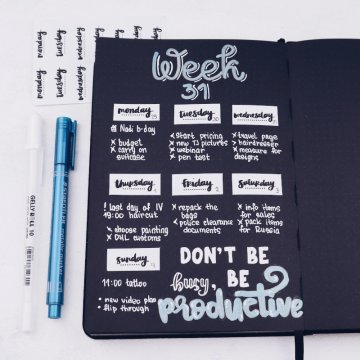 monday
tuesday
wednesday
Week
31
monday 29
Tuesday 30
wednesday
Nadi b-day
x budget
x carry on
suitcase
< Start pricing
x new TJ pictures
x webinar
x pen test
x travel page
> hairdresser
> measure for
designs
thursday 1
Friday 2
Saturday 3
! last day of IV
19:00 haircut
x choose painting
x DHL customs
x repack the
bags
< police clearance
documents
x info items
for sales
x pack items
for Russia
sunday
11:00 tattoo
• new video plan
• flip through
DON'T BE
busy, BE
productive
GELLY ROLL 10